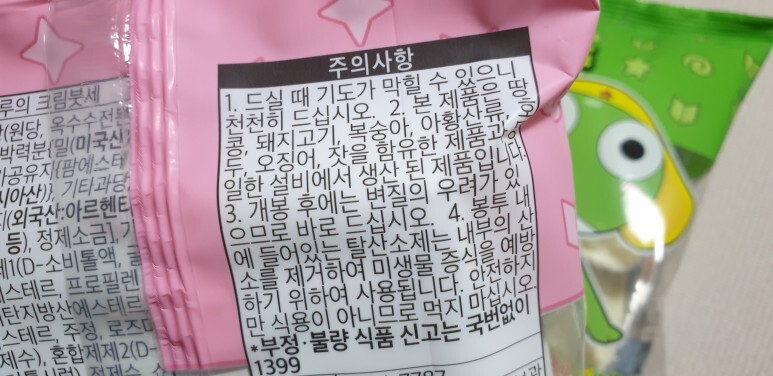 주의사항
1. 드실 때 기도가 막힐 수 있으니
천천히 드십시오. 2. 본 제품은 땅
콩, 돼지고기, 복숭아, 아황산류, 호
두, 오징어, 잣을 함유한 제품과 동
일한 설비에서 생산된 제품입니다.
3. 개봉 후에는 변질의 우려가 있
으므로 바로 드십시오. 4. 봉투 내
에 들어있는 탈산소제는 내부의 산
소를 제거하여 미생물 증식을 예방
하기 위하여 사용됩니다. 안전하지
만 식용이 아니므로 먹지 마십시오
*부정·불량 식품 신고는 국번없이
1399
루의 크림붓세
(원당, 옥수수전분
박력분{밀(미국산
가공유지{팜에스테
시아산)} 기타과당
(외국산:아르헨티
등), 정제소금],
제1(D-소비톨액, 글
스테르, 프로필렌
타지방산에스테르
스테르, 주정, 로즈마
제수), 혼합제제2(D-